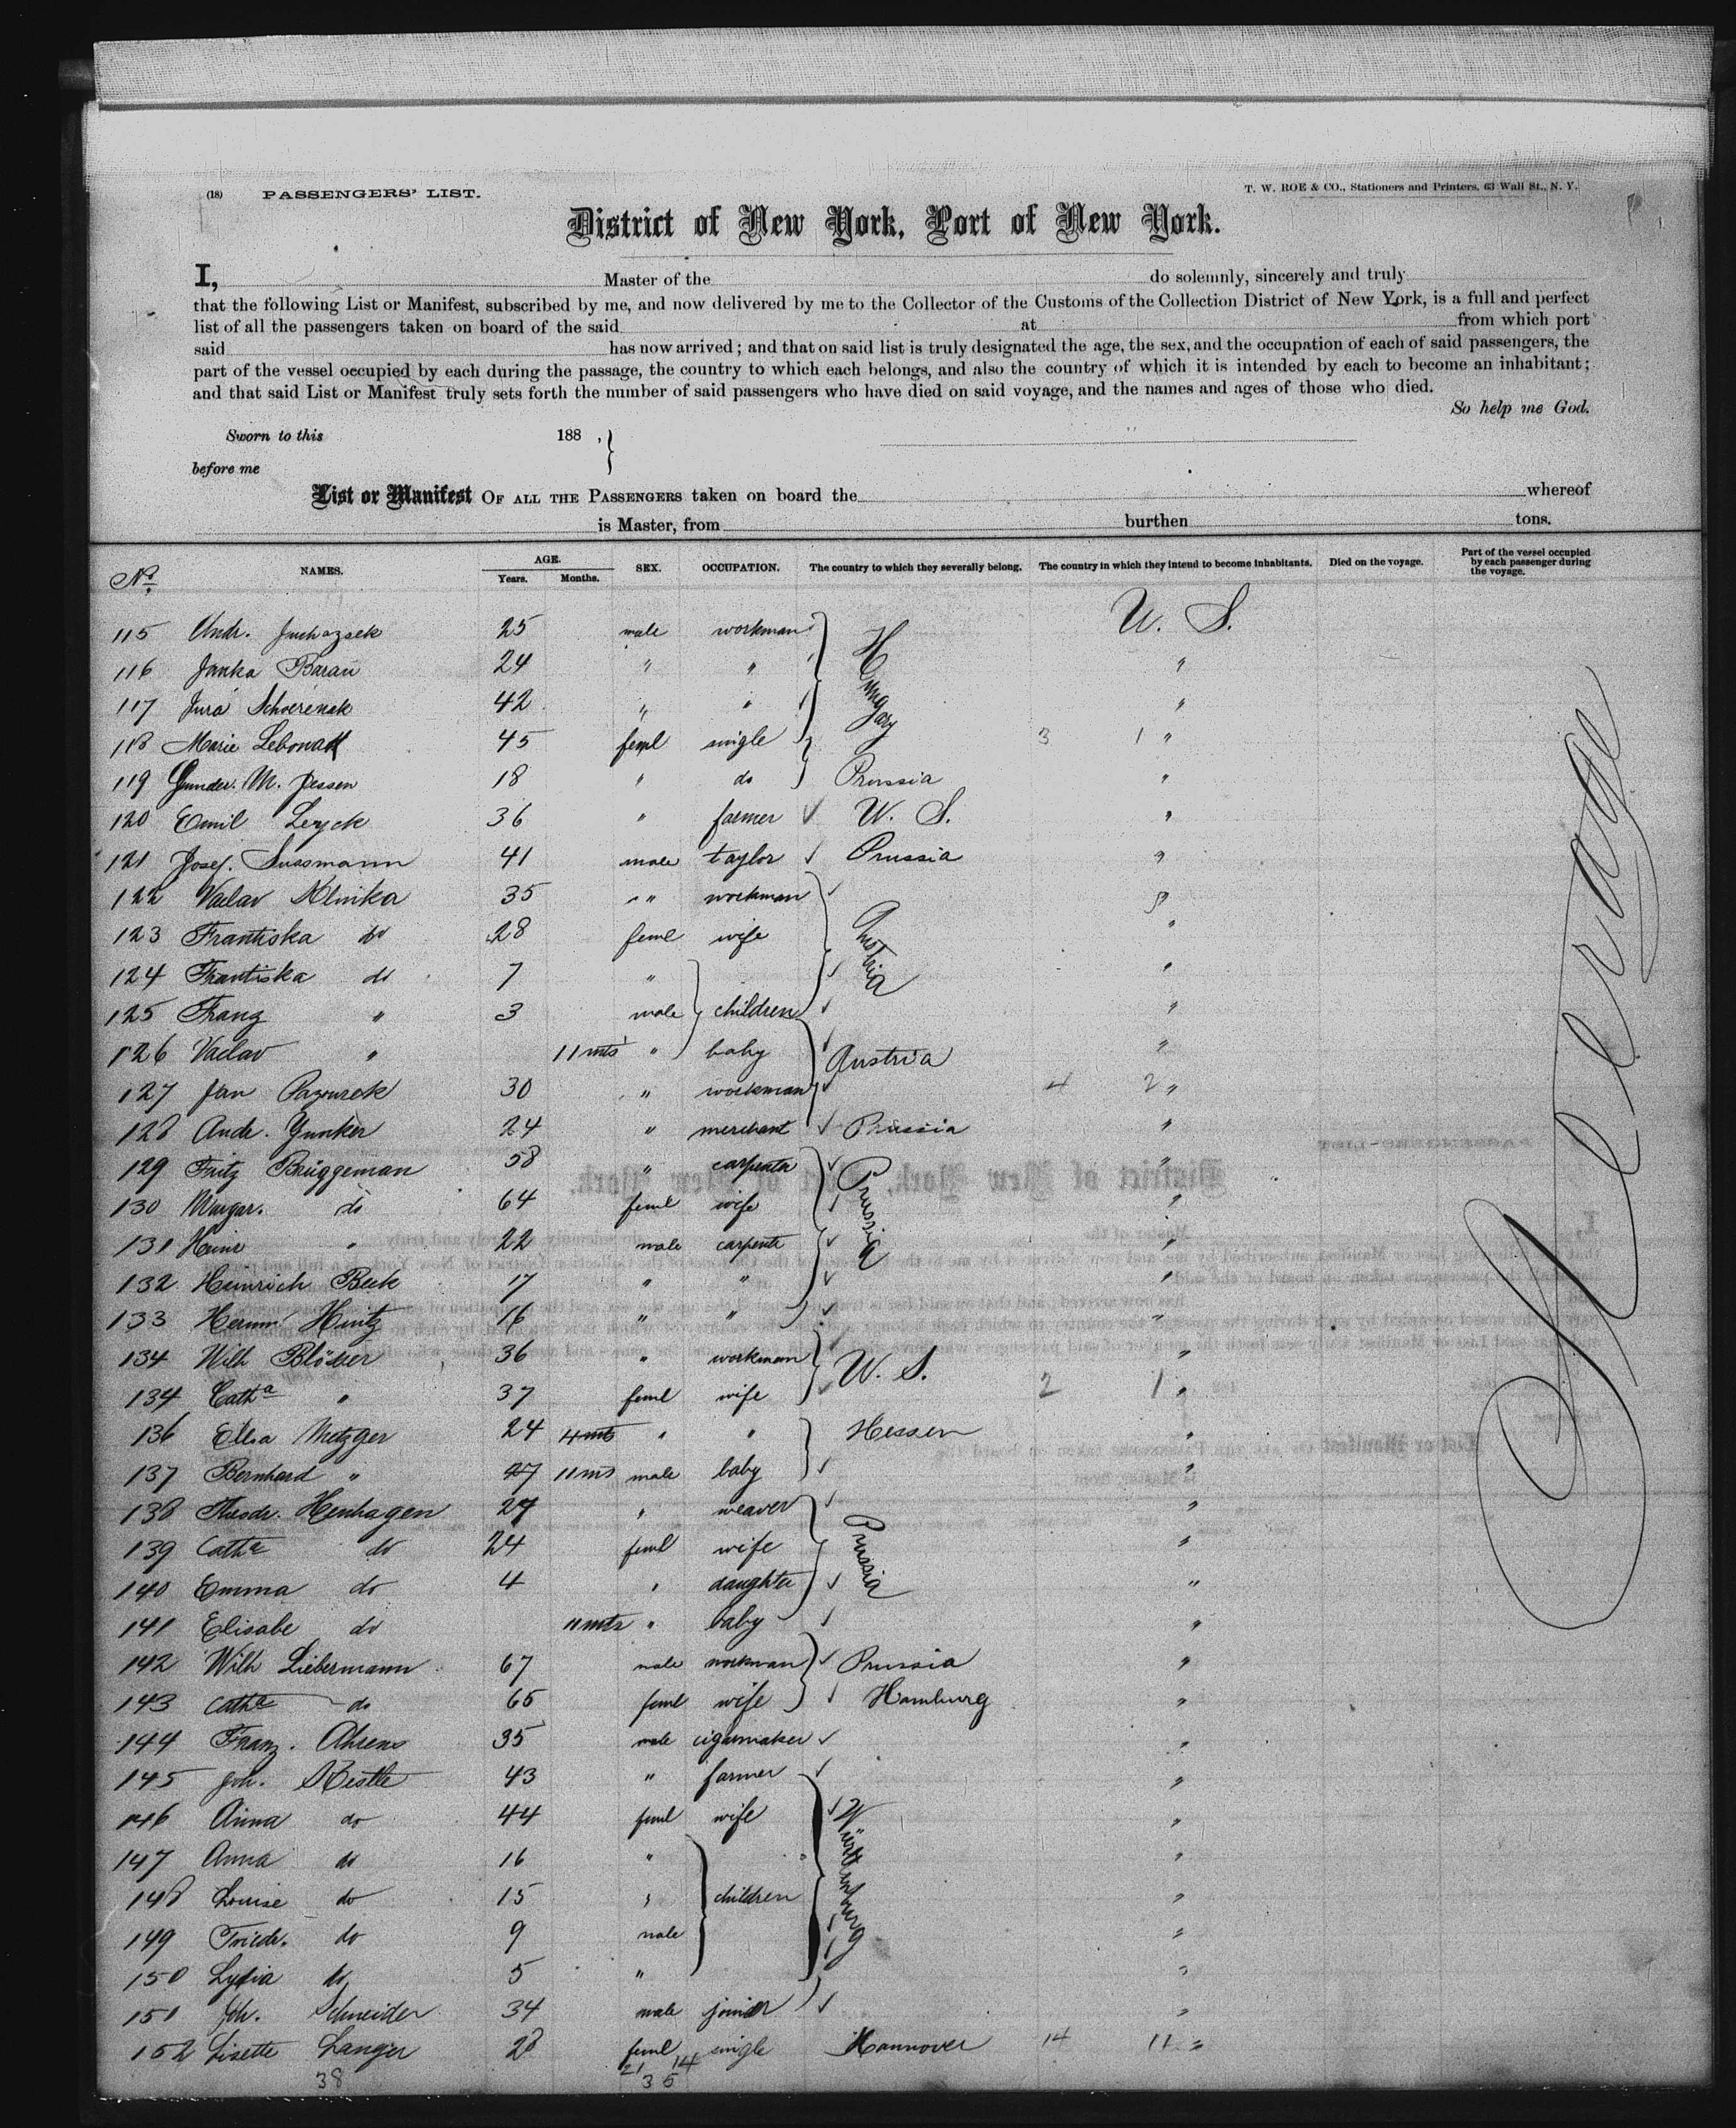 (18) PASSENGERS' LIST. T. W. ROE & CO., Stationers and Printers, 63 Wall St., N. Y.
District of New York, Port of New York.
I, Master of the do solemnly, sincerely and truly
that the following List or Manifest, subscribed by me, and now delivered by me to the Collector of the Customs of the Collection District of New York, is a full and perfect
list of all the passengers taken on board of the said at from which port
said has now arrived; and that on said list is truly designated the age, the sex, and the occupation of each of said passengers, the
part of the vessel occupied by each during the passage, the country to which each belongs, and also the country of which it is intended by each to become an inhabitant;
and that said List or Manifest truly sets forth the number of said passengers who have died on said voyage, and the names and ages of those who died.
So help me God.
Sworn to this 188 ,
before me
List or Manifest OF ALL THE PASSENGERS taken on board the whereof
is Master, from burthen tons.
No. NAMES. AGE. Years. Months. SEX. OCCUPATION. The country to which they severally belong. The country in which they intend to become inhabitants. Died on the voyage. Part of the vessel occupied by each passenger during the voyage.
115 Andr. 25 male workman Hungary U. S.
116 Janka Baran 24 " " "
117 Jura 42 " " "
118 Marie 45 feml single 3 1 "
119 Gunder. M. Jessen 18 " do Prussia "
120 Emil Leyck 36 " farmer U. S. "
121 Josef. Sussmann 41 male taylor Prussia "
122 Vaclav 35 " workman Austria "
123 Frantiska do 28 feml wife "
124 Frantiska do 7 " "
125 Franz " 3 male children "
126 Vaclav " 11 mts " baby Austria "
127 Jan 30 " workman 4 2 "
128 Andr. Yunker 24 " merchant Prussia "
129 Fritz Brüggeman 58 " carpenter Prussia "
130 Margar. do 64 feml wife "
131 Heinr " 22 male carpente "
132 Heinrich Beck 17 " " "
133 Herm. Hintz 16 " " "
134 Wilh 36 " workman U. S. "
134 Catha " 37 feml wife 2 1 "
136 Elisa Metzger 24 4 mts " " Hessen "
137 Bernhard " 11 ms male baby "
138 Theodr. Henhagen 27 " weaver Prussia "
139 Catha do 24 feml wife "
140 Emma do 4 " daughter "
141 Elisabe do 11 mts " baby "
142 Wilh Liebermann 67 male workman Prussia "
143 Catha do 65 feml wife Hamburg "
144 Franz. Ahrens 35 male cigarmaker "
145 Joh. Kestle 43 " farmer Württemburg "
146 Anna do 44 feml wife "
147 Anna do 16 " "
148 Louise do 15 " children "
149 Friedr. do 9 male "
150 Lydia do 5 " "
151 Joh. Schneider 34 male joiner "
152 Lisette Langer 28 feml single Hannover 14 11 "
38 21 14
35
Steerage